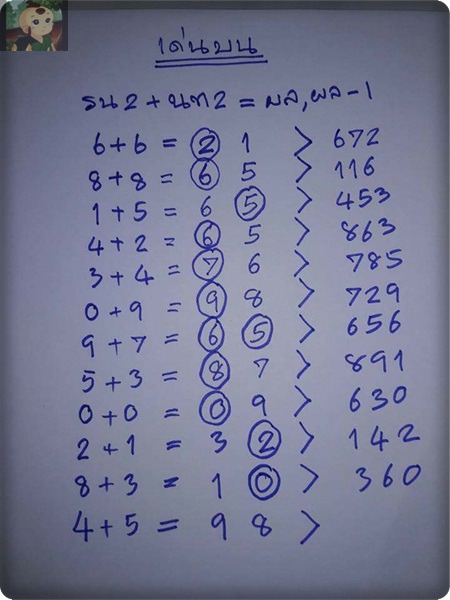 เด่นบน
รน2+นท2 = ผล, ผล-1
6+6 = 2 1 > 672
8+8 = 6 5 > 116
1+5 = 6 5 > 453
4+2 = 6 5 > 863
3+4 = 7 6 > 785
0+9 = 9 8 > 729
9+7 = 6 5 > 656
5+3 = 8 7 > 891
0+0 = 0 9 > 630
2+1 = 3 2 > 142
8+3 = 1 0 > 360
4+5 = 9 8 >